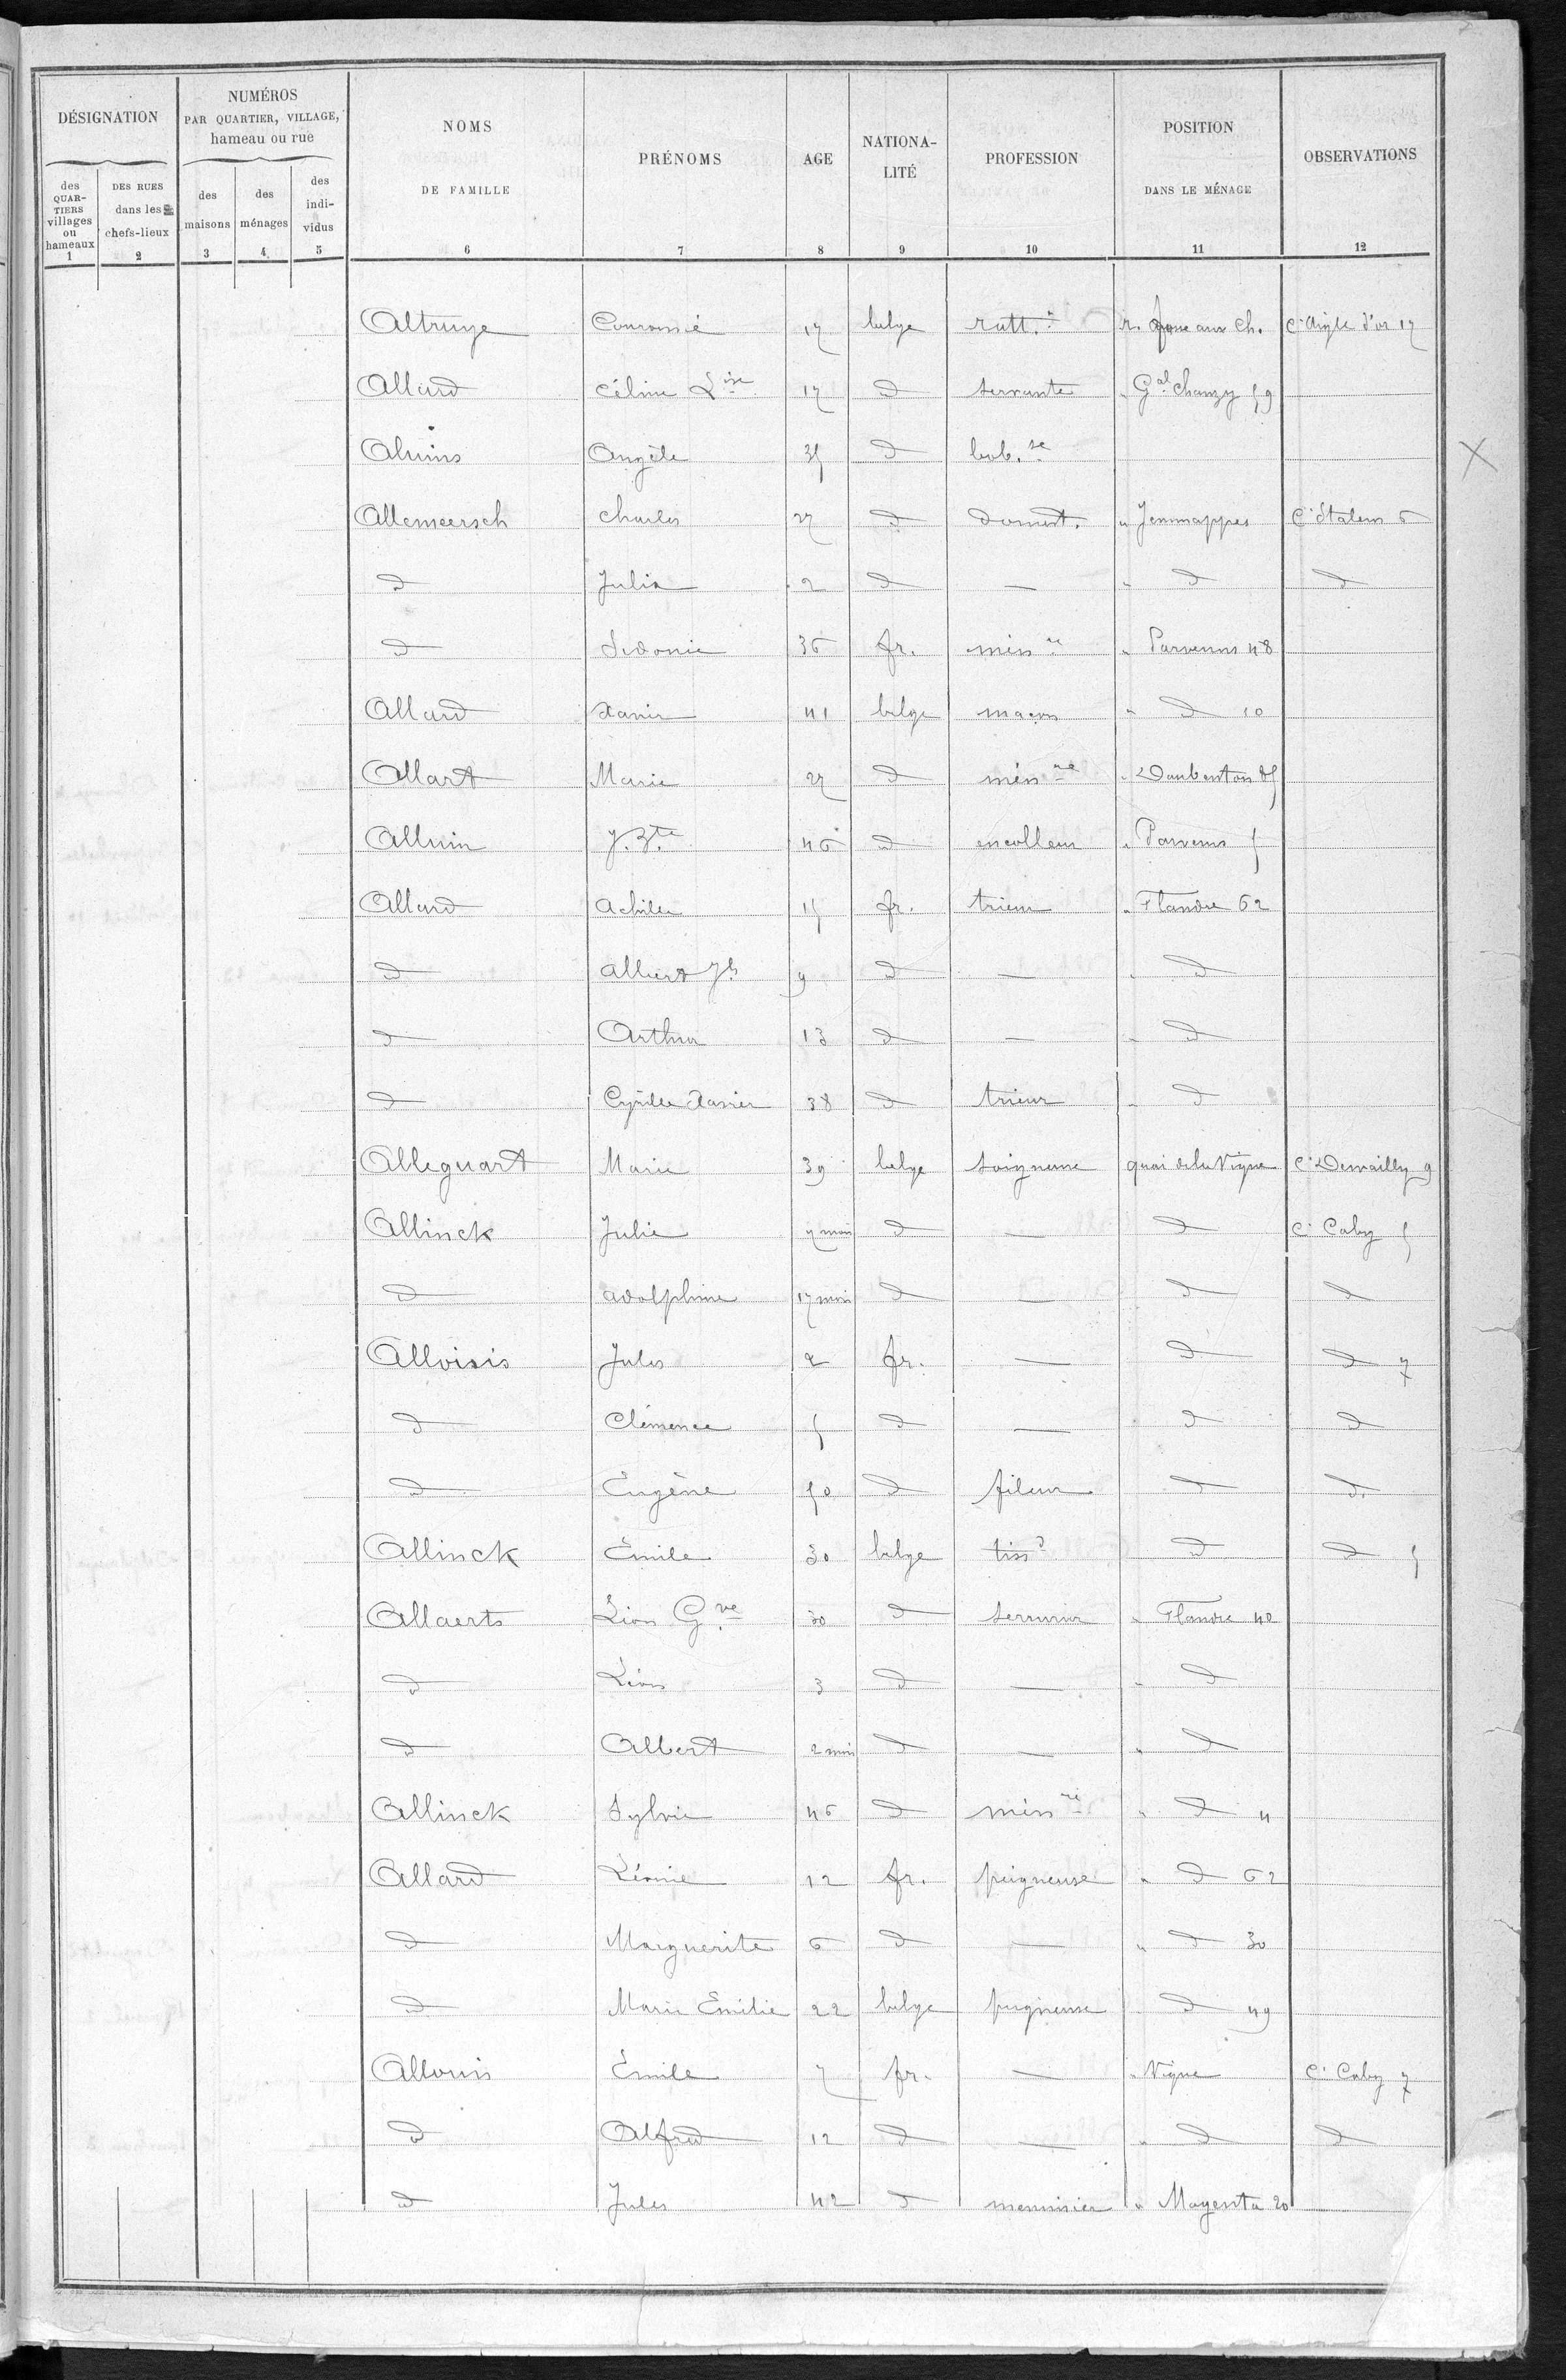 DÉSIGNATION
NUMÉROS
PAR QUARTIER, VILLAGE,
hameau ou rue
NOMS
DE FAMILLE
PRÉNOMS
AGE
NATIONA-
LITÉ
PROFESSION
POSITION
DANS LE MÉNAGE
OBSERVATIONS
des QUAR-TIERS villages ou hameaux
DES RUES dans les chefs-lieux
des maisons
des ménages
des indi-vidus
1 2 3 4 5 6 7 8 9 10 11 12
Altruye 17 belge ratt. r. aux Ch. C. Aigle d'or 17
Allard Céline 17 d servante " Gal Chanzy 59
Aluins Angèle 35 d bob.se
Allemeersch Charles 27 d domest. " Jemmappes C. 6
d Julia 2 d — " d d
d Sidonie 36 fr. mén re " Parvenus 48
Allard Xavier 41 belge maçon " d 10
Allart Marie 27 d mén re " Daubenton 85
Alluin J. Bte 46 d encolleur " Parvenus 5
Allard Achille 15 fr. trieur " Flandre 62
d Albert Jh 9 d — " d
d Arthur 13 d — " d
d Cyrille Xavier 38 d trieur " d
Allequart Marie 39 belge soigneuse quai de la Vigne C. Dewailly 9
Allinck Julie 7 mois d — d C. Caby 5
d Adolphine 17 mois d — d d
Alloisis Jules 2 fr. — d d 7
d Clémence 5 d — d d
d Eugène 50 d fileur d d.
Allinck Émile 30 belge tissd d d 5
Allaerts Léon Gve 30 d serrurier " Flandre 40
d Léon 3 d — " d
d Albert 2 mois d — " d
Allinck Sylvie 46 d mén re " d 4
Allard Léonie 12 fr. peigneuse " d 62
d Marguerite 6 d — " d 30
d Marie Émilie 22 belge peigneuse d 49
Allouis Émile 7 fr. — " Vigne C. Caby 7
d Alfred 12 d — " d d
d Jules 42 d menuisier " Magenta 20